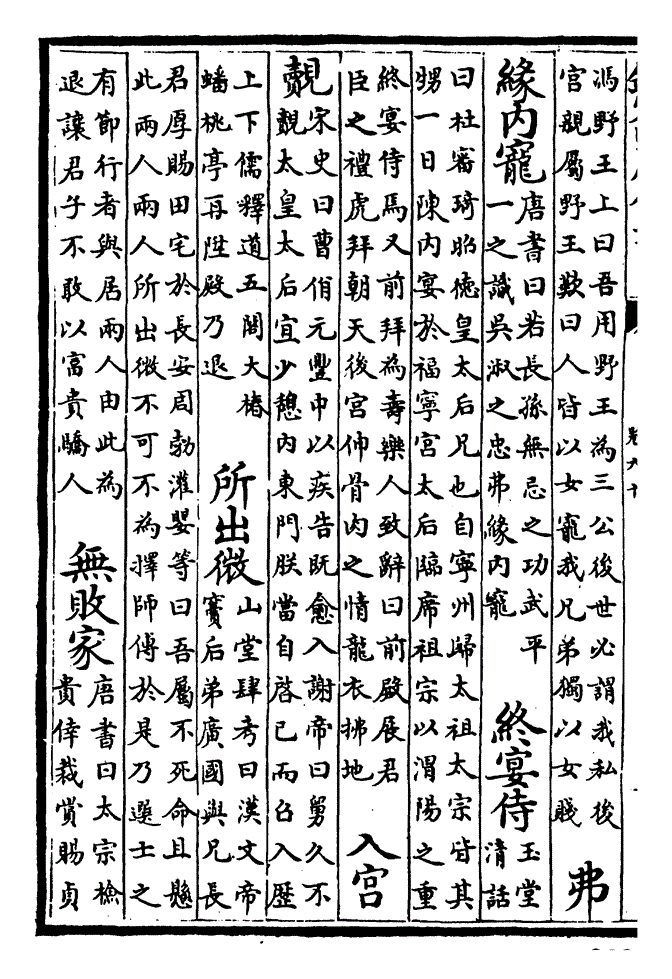 卷九十
馮野王上曰吾用野王為三公後世必謂我私後
官親屬野王歎曰人皆以女寵我兄弟獨以女賤
弗
緣內寵
唐書曰若長孫無忌之功武平
一之識吳淑之忠弗緣內寵
終宴侍
玉堂
清話
曰杜審琦昭德皇太后兄也自寧州歸太祖太宗皆其
甥一日陳內宴於福寧宮太后臨席祖宗以渭陽之重
終宴侍焉又前拜為壽樂人致辭曰前殿展君
臣之禮虎拜朝天後宮伸骨肉之情龍衣拂地
入宮
覿
宋史曰曹佾元豐中以疾告既愈入謝帝曰舅久不
覿太皇太后宜少憩內東門朕當自啓已而召入歷
上下儒釋道五閣大椿
蟠桃亭再陞殿乃退
所出微
山堂肆考曰漢文帝
竇后弟廣國與兄長
君厚賜田宅於長安周勃灌嬰等曰吾屬不死命且懸
此兩人兩人所出微不可不為擇師傅於是乃選士之
有節行者與居兩人由此為
退讓君子不敢以富貴驕人
無敗家
唐書曰太宗檢
貴倖裁賞賜貞